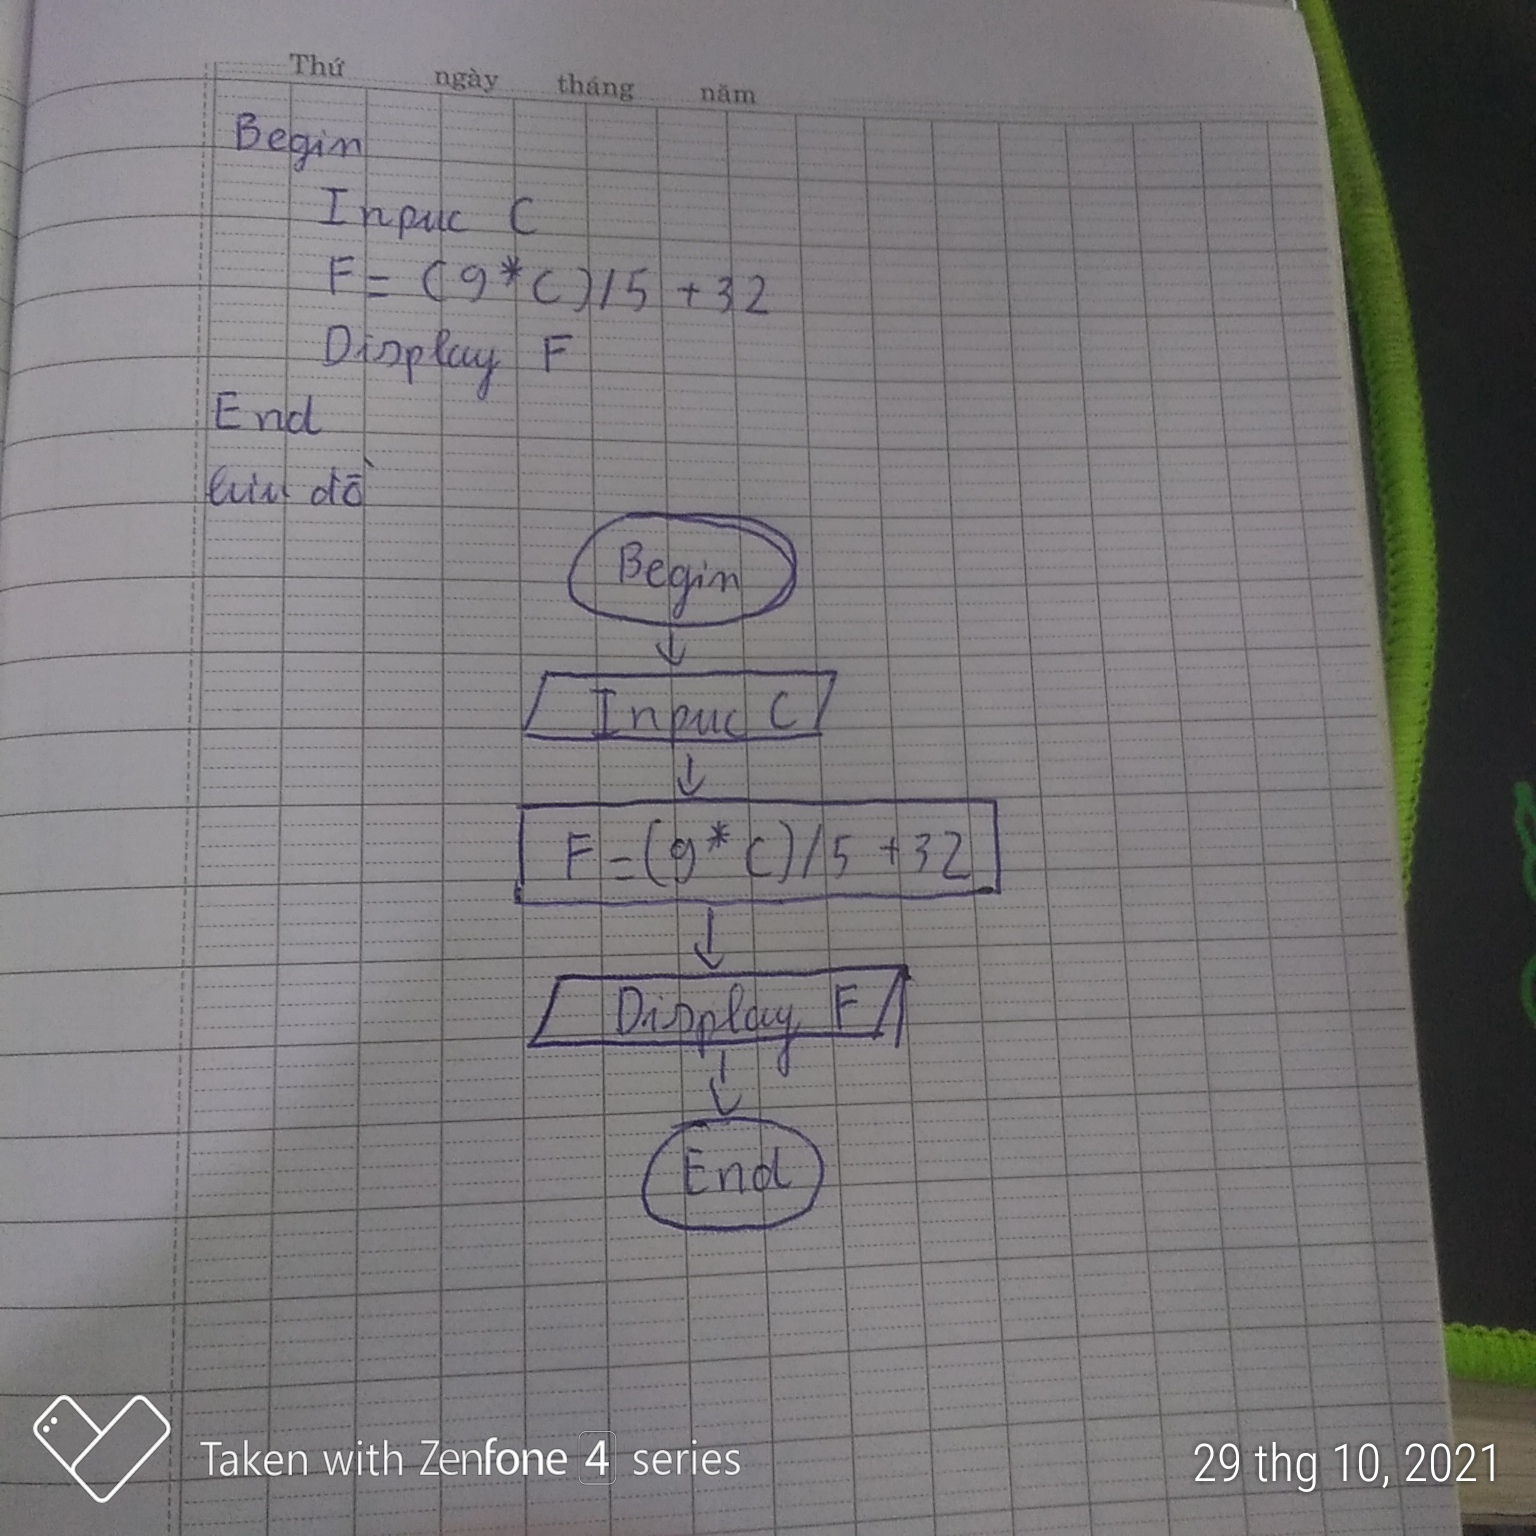 Thứ ngày tháng năm
Begin
Inpuc C
F = (9*C)/5 +32
Display F
End
lưu đồ
Begin
Inpuc C
F = (9*C)/5 +32
Display F
End
Taken with Zenfone 4 series
29 thg 10, 2021